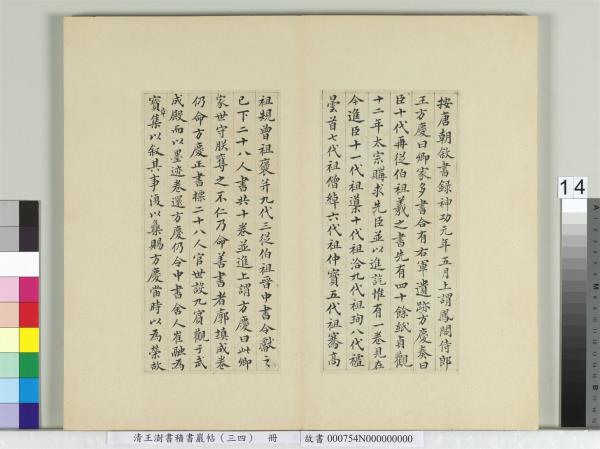 按唐朝敘書錄神功元年五月上謂鳳閣侍郎
王方慶曰卿家多書合有右軍遺跡方慶奏曰
臣十代再從伯祖羲之書先有四十餘紙貞觀
十二年太宗購求先臣並以進訖惟有一卷見在
今進臣十一代祖導十代祖洽九代祖珣八代祖
曇首七代祖僧綽六代祖仲寶五代祖騫高
祖規曾祖褒并九代三從伯祖晉中書令獻之
已下二十八人書共十卷並進上謂方慶曰此卿
家世守朕奪之不仁乃命善書者廓填成卷
仍命方慶正書標二十八人官世設九賓觀于武
成殿而以墨迹卷還方慶仍令中書舍人崔融為
寶章集以叙其事復以集賜方慶當時以為榮故
清王澍書積書巖帖（三四） 冊 故書 000754N000000000
14